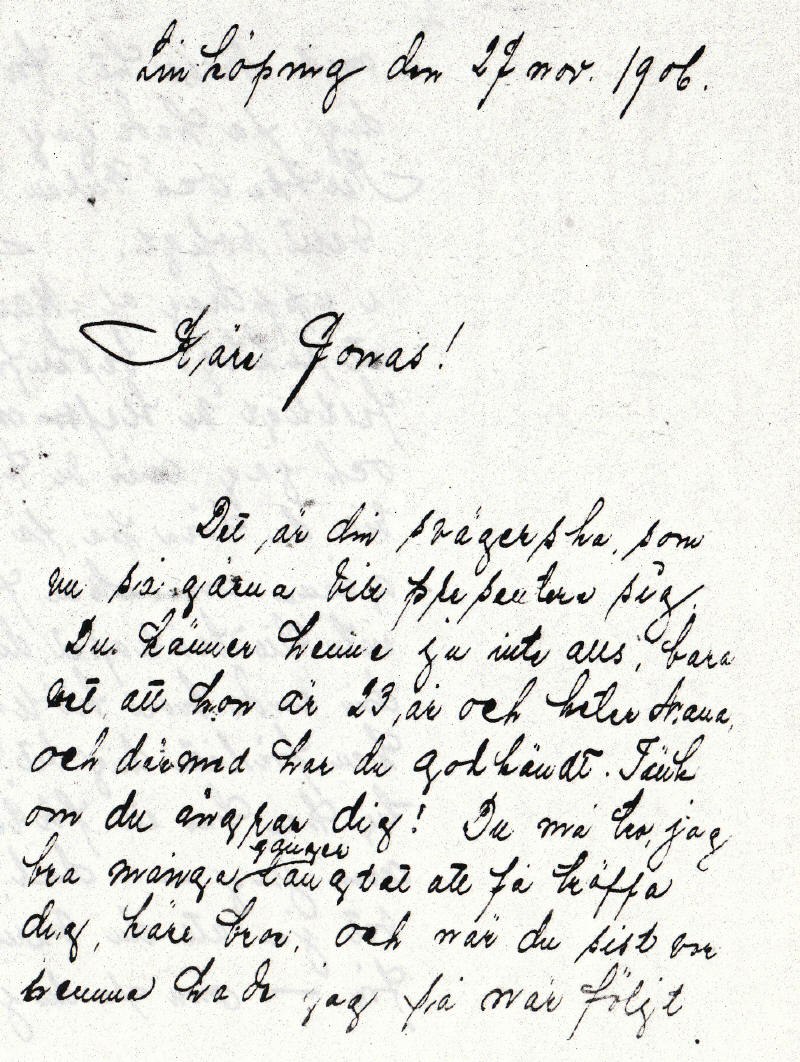 Linköping den 27 nov. 1906.
Käre Jonas!
Det är din svägerska, som
nu så gärna vill presentera sig.
Du känner henne ju inte alls, bara
vet att hon är 23 år och heter
och därmed har du godkändt. Tänk
om du ångrar dig! Du må tro, jag
bra många gånger längtat att få träffa
dig, käre bror, och när du sist var
hemma hade jag så när följt